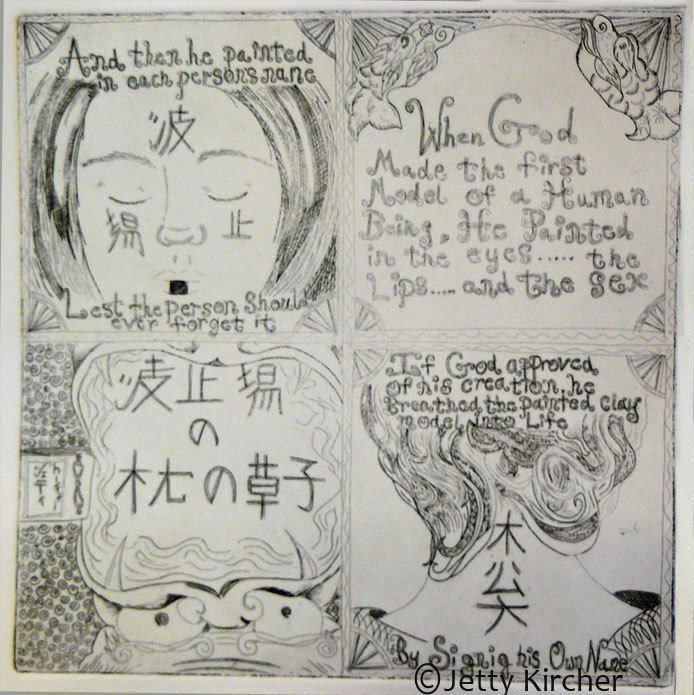 And then he painted
in each persons nane
波
止
Lest the person Should
ever forget it
When God
Made the first
Model of a Human
Being, He Painted
in the eyes..... the
Lips..... and the sex
止
の
枕の草子
If God approved
of his creation, he
Breathed the painted clay
model into Life
By Signig his Own Nane
©Jetty Kircher